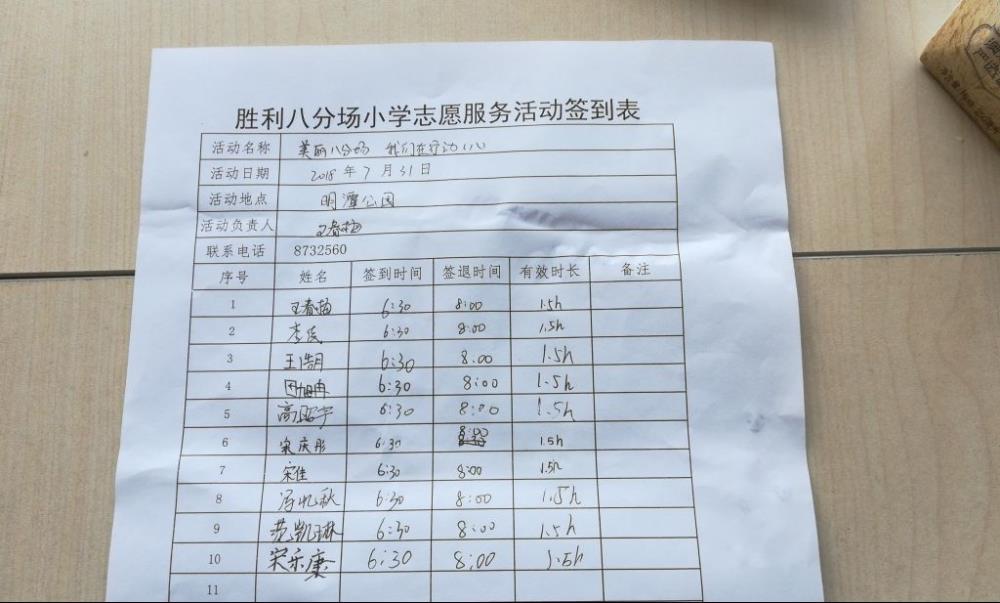 胜利八分场小学志愿服务活动签到表
活动名称 美丽八分场 我们在行动(八)
活动日期 2018年7月31日
活动地点 明潭公园
活动负责人 王春梅
联系电话 8732560
序号 姓名 签到时间 签退时间 有效时长 备注
1 王春梅 6:30 8:00 1.5h
2 李民 6:30 8:00 1.5h
3 王浩月 6:30 8:00 1.5h
4 田旭冉 6:30 8:00 1.5h
5 高 宇 6:30 8:00 1.5h
6 宋庆彤 6:30 8:00 1.5h
7 宋佳 6:30 8:00 1.5h
8 冯忆秋 6:30 8:00 1.5h
9 范凯琳 6:30 8:00 1.5h
10 宋乐康 6:30 8:00 1.5h
11